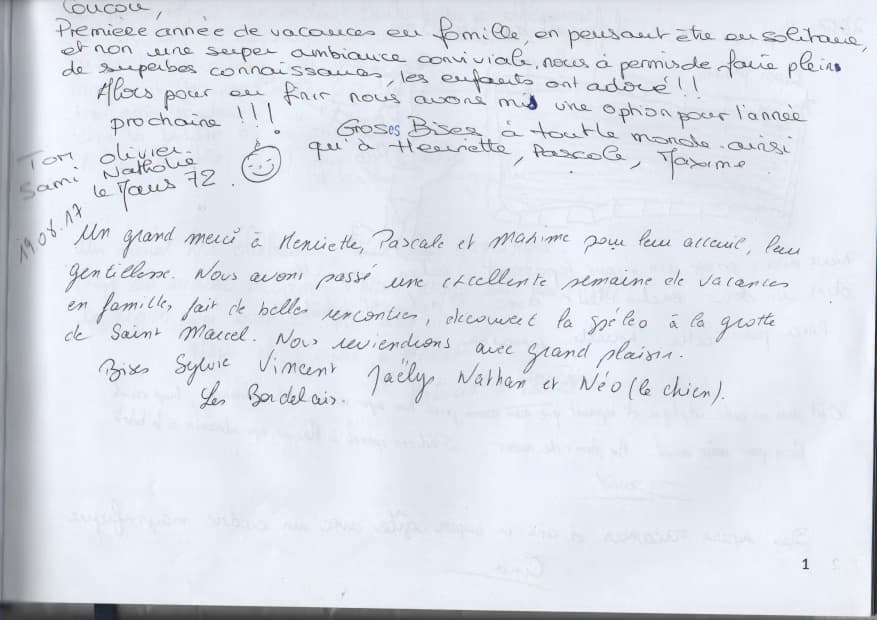 Coucou,
Première année de vacances en famille, en pensant être en solitaire,
et non une super ambiance conviviale, nous à permis de faire pleins
de superbes connaissances, les enfants ont adoré!!
Alors pour en finir nous avons mis une option pour l'année
prochaine !!!
Groses Bises à tout le monde ainsi
qu'à Henriette, Pascale, Maxime
Tom Olivier
Sami Nathalie
le Mans 72.
19.08.17
Un grand merci à Henriette, Pascale et Maxime pour leur acceuil, leur
gentillesse. Nous avons passé une excellente semaine de vacances
en famille, fait de belles rencontres, découvert la spéléo à la grotte
de Saint Marcel. Nous reviendrons avec grand plaisir.
Bises Sylvie Vincent Jaëlys Nathan et Néo (le chien).
Les Bordelais.
1